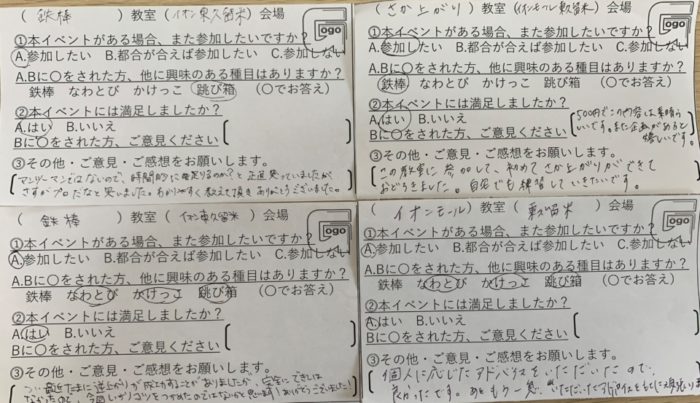 （ 鉄棒 ）教室（イオン東久留米）会場
ogo
①本イベントがある場合、また参加したいですか？
A.参加したい B.都合が合えば参加したい C.参加しない
A.Bに〇をされた方、他に興味のある種目はありますか？
鉄棒 なわとび かけっこ 跳び箱 （〇でお答え）
②本イベントには満足しましたか？
A.はい B.いいえ
Bに〇をされた方、ご意見ください
③その他・ご意見・ご感想をお願いします。
マンツーマンではないので、時間的に足りるのか？と正直思っていましたが
さすがプロだなと思いました。わかりやすく教えて頂きありがとうございました。
（ さか上がり ）教室（イオンモール東久留米）会場
ogo
①本イベントがある場合、また参加したいですか？
A.参加したい B.都合が合えば参加したい C.参加しない
A.Bに〇をされた方、他に興味のある種目はありますか？
鉄棒 なわとび かけっこ 跳び箱 （〇でお答え）
②本イベントには満足しましたか？
A.はい B.いいえ
Bに〇をされた方、ご意見ください
500円でこの内容は素晴らしいです。また企画があると嬉しいです。
③その他・ご意見・ご感想をお願いします。
この教室に参加して、初めてさか上がりができて
おどろきました。自宅でも練習していきたいです。
（ 鉄棒 ）教室（イオン東久留米）会場
ogo
①本イベントがある場合、また参加したいですか？
A.参加したい B.都合が合えば参加したい C.参加しない
A.Bに〇をされた方、他に興味のある種目はありますか？
鉄棒 なわとび かけっこ 跳び箱 （〇でお答え）
②本イベントには満足しましたか？
A.はい B.いいえ
Bに〇をされた方、ご意見ください
③その他・ご意見・ご感想をお願いします。
つい最近たまに逆上がりが成功することがありましたが、完全にできては
なかったので、今回しっかりコツをつかめたのではないかと思います！ありがとうございました！
（ イオンモール ）教室（ 東久留米 ）会場
ogo
①本イベントがある場合、また参加したいですか？
A.参加したい B.都合が合えば参加したい C.参加しない
A.Bに〇をされた方、他に興味のある種目はありますか？
鉄棒 なわとび かけっこ 跳び箱 （〇でお答え）
②本イベントには満足しましたか？
A.はい B.いいえ
Bに〇をされた方、ご意見ください
③その他・ご意見・ご感想をお願いします。
個人に応じたアドバイスをいただいたので、
良かったです。あともう一息、いただいたアドバイスをもとに